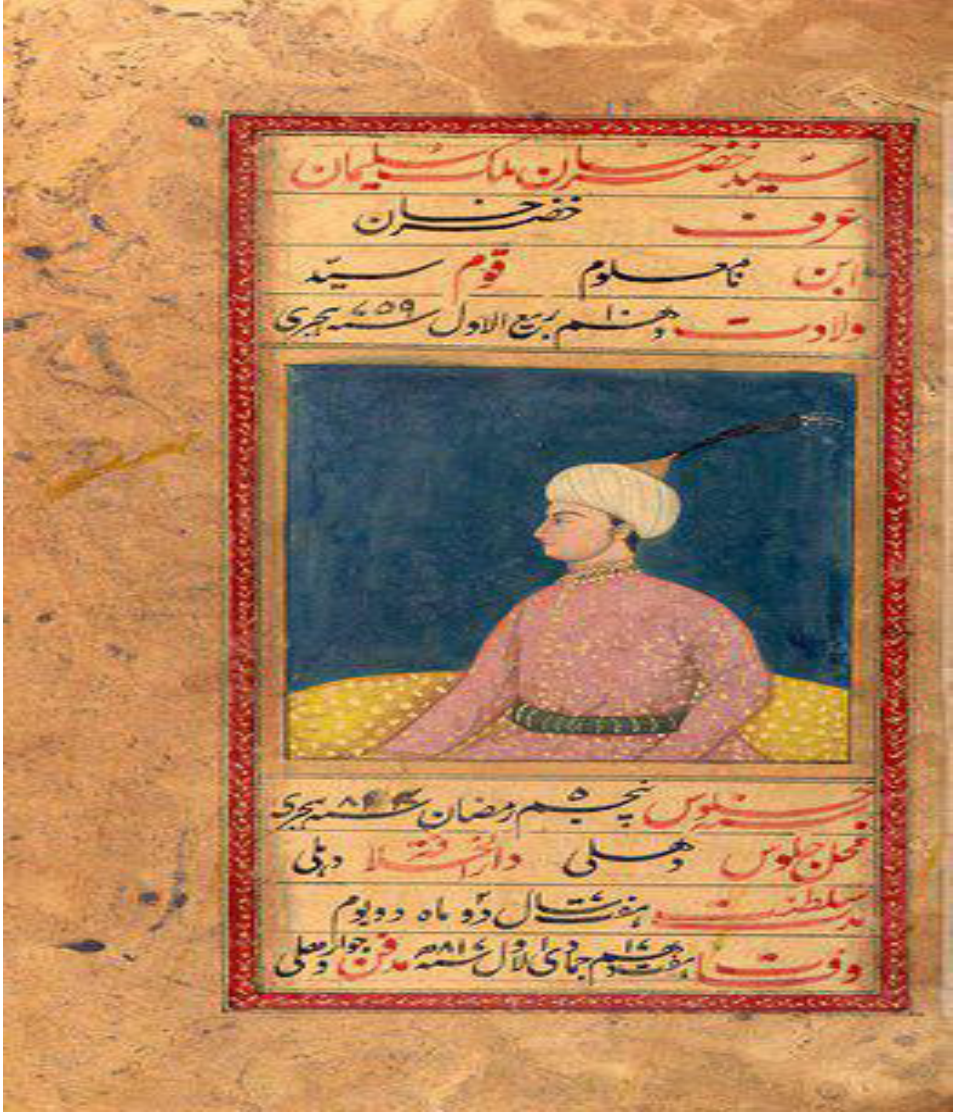 سید خضر خان ملک سلیمان
عرف خضر خان
ابن نامعلوم قوم سید
ولادت دهم ۱۰ ربیع الاول سنه ۷۵۹ هجری
جلوس پنجم ۵ رمضان سنه هجری
محل جلوس دهلی دارالخلافة دہلی
مدت سلطنت هفت ۷ سال دو ۲ ماه دو یوم
وفات هفدهم ۱۷ جمادی الاول سنه ۸۱۷ مدفن جوار دهلی